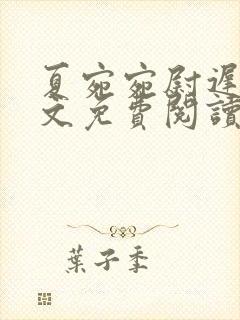 夏宛宛尉遲
文免費閱讀
葉子季